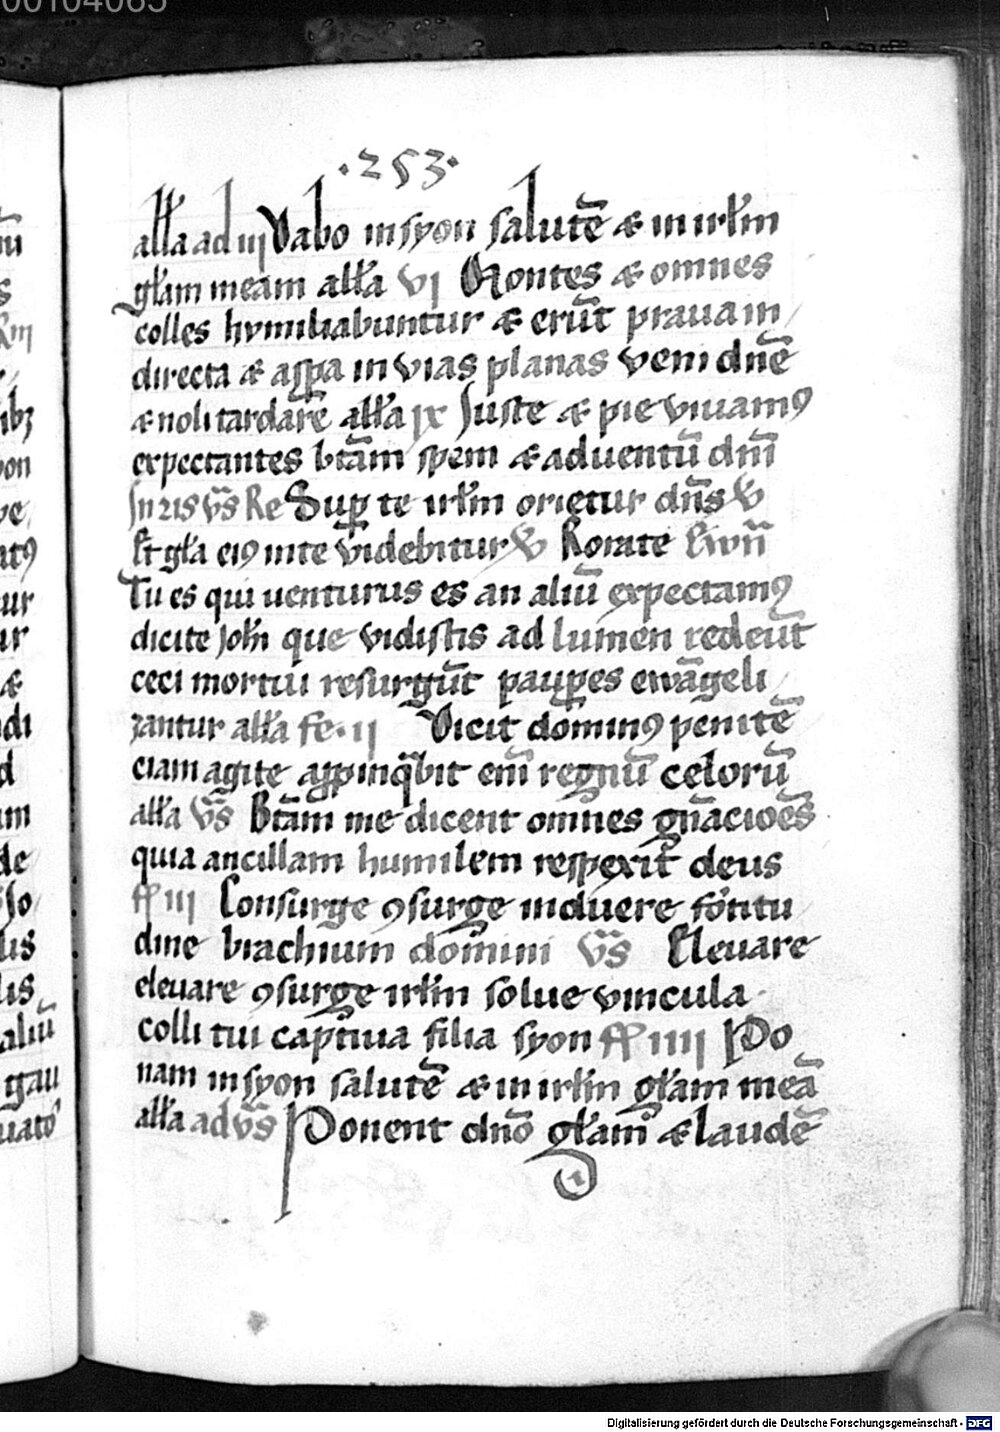 00104065
·253·
all'a ad iij Dabo in syon salutē & in irl'm
gl'am meam all'a vj Montes & omnes
colles hvmiliabuntur & erūt praua in
directa & aspa in vias planas veni dnē
& noli tardare all'a ix Juste & pie viuamꝰ
expectantes btām spem & aduentū dnī
In 2is vs̄ Re Sup te irl'm orietur dn̄s v
Et gl'a eiꝰ in te videbitur v Rorate
Tu es qui uenturus es an aliū expectamꝰ
dicite Joh'i que vidistis ad lumen redeūt
ceci mortui resurgūt paupes ewāgeli
zantur all'a fe· ij Vicit dominꝰ penitē
ciam agite appinqbit em̄ regnū celorū
all'a vs̄ Btām me dicent omnes gnāciōes
quia ancillam humilem respexit deus
ff iij Consurge ꝯsurge induere fortitu
dine brachium domini vs̄ Eleuare
eleuare ꝯsurge irl'm solue vincula
colli tui captiua filia syon ff iiij Po
nam in syon salutē & in irl'm gl'am meā
all'a ad vs̄ Ponent dnō gl'am & laudē
Digitalisierung gefördert durch die Deutsche Forschungsgemeinschaft - DFG